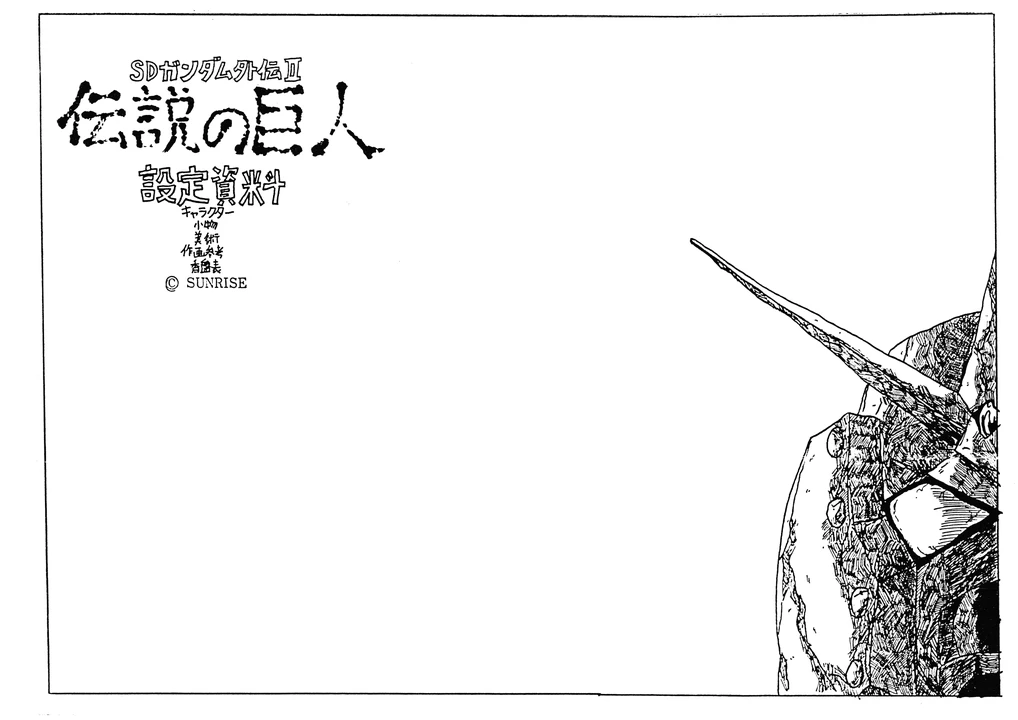 SDガンダム外伝Ⅱ
伝説の巨人
設定資料
キャラクター
小物
美術
作画参考
香盤表
© SUNRISE